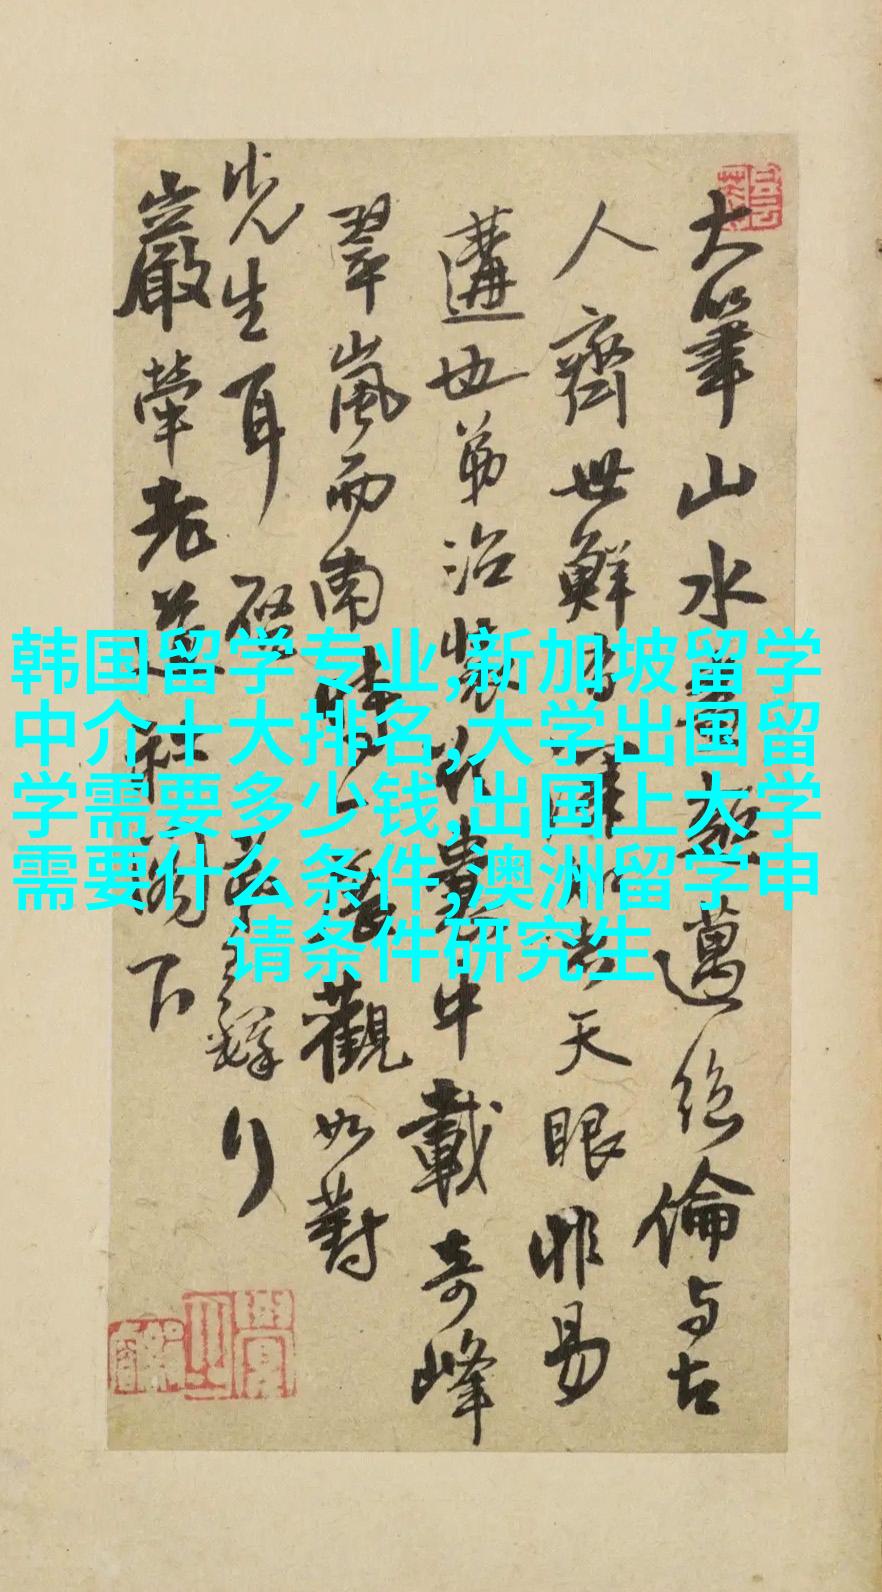 大筆山水邁絕倫与古
人齊世鮮天眼非易
遘也弟治裝中載奇峰
翠嵐而南時一展觀如對
先生耳
嚴犖老道社閣下
韩国留学专业,新加坡留学
中介十大排名,大学出国留
学需要多少钱,出国上大学
需要什么条件,澳洲留学申
请条件研究生